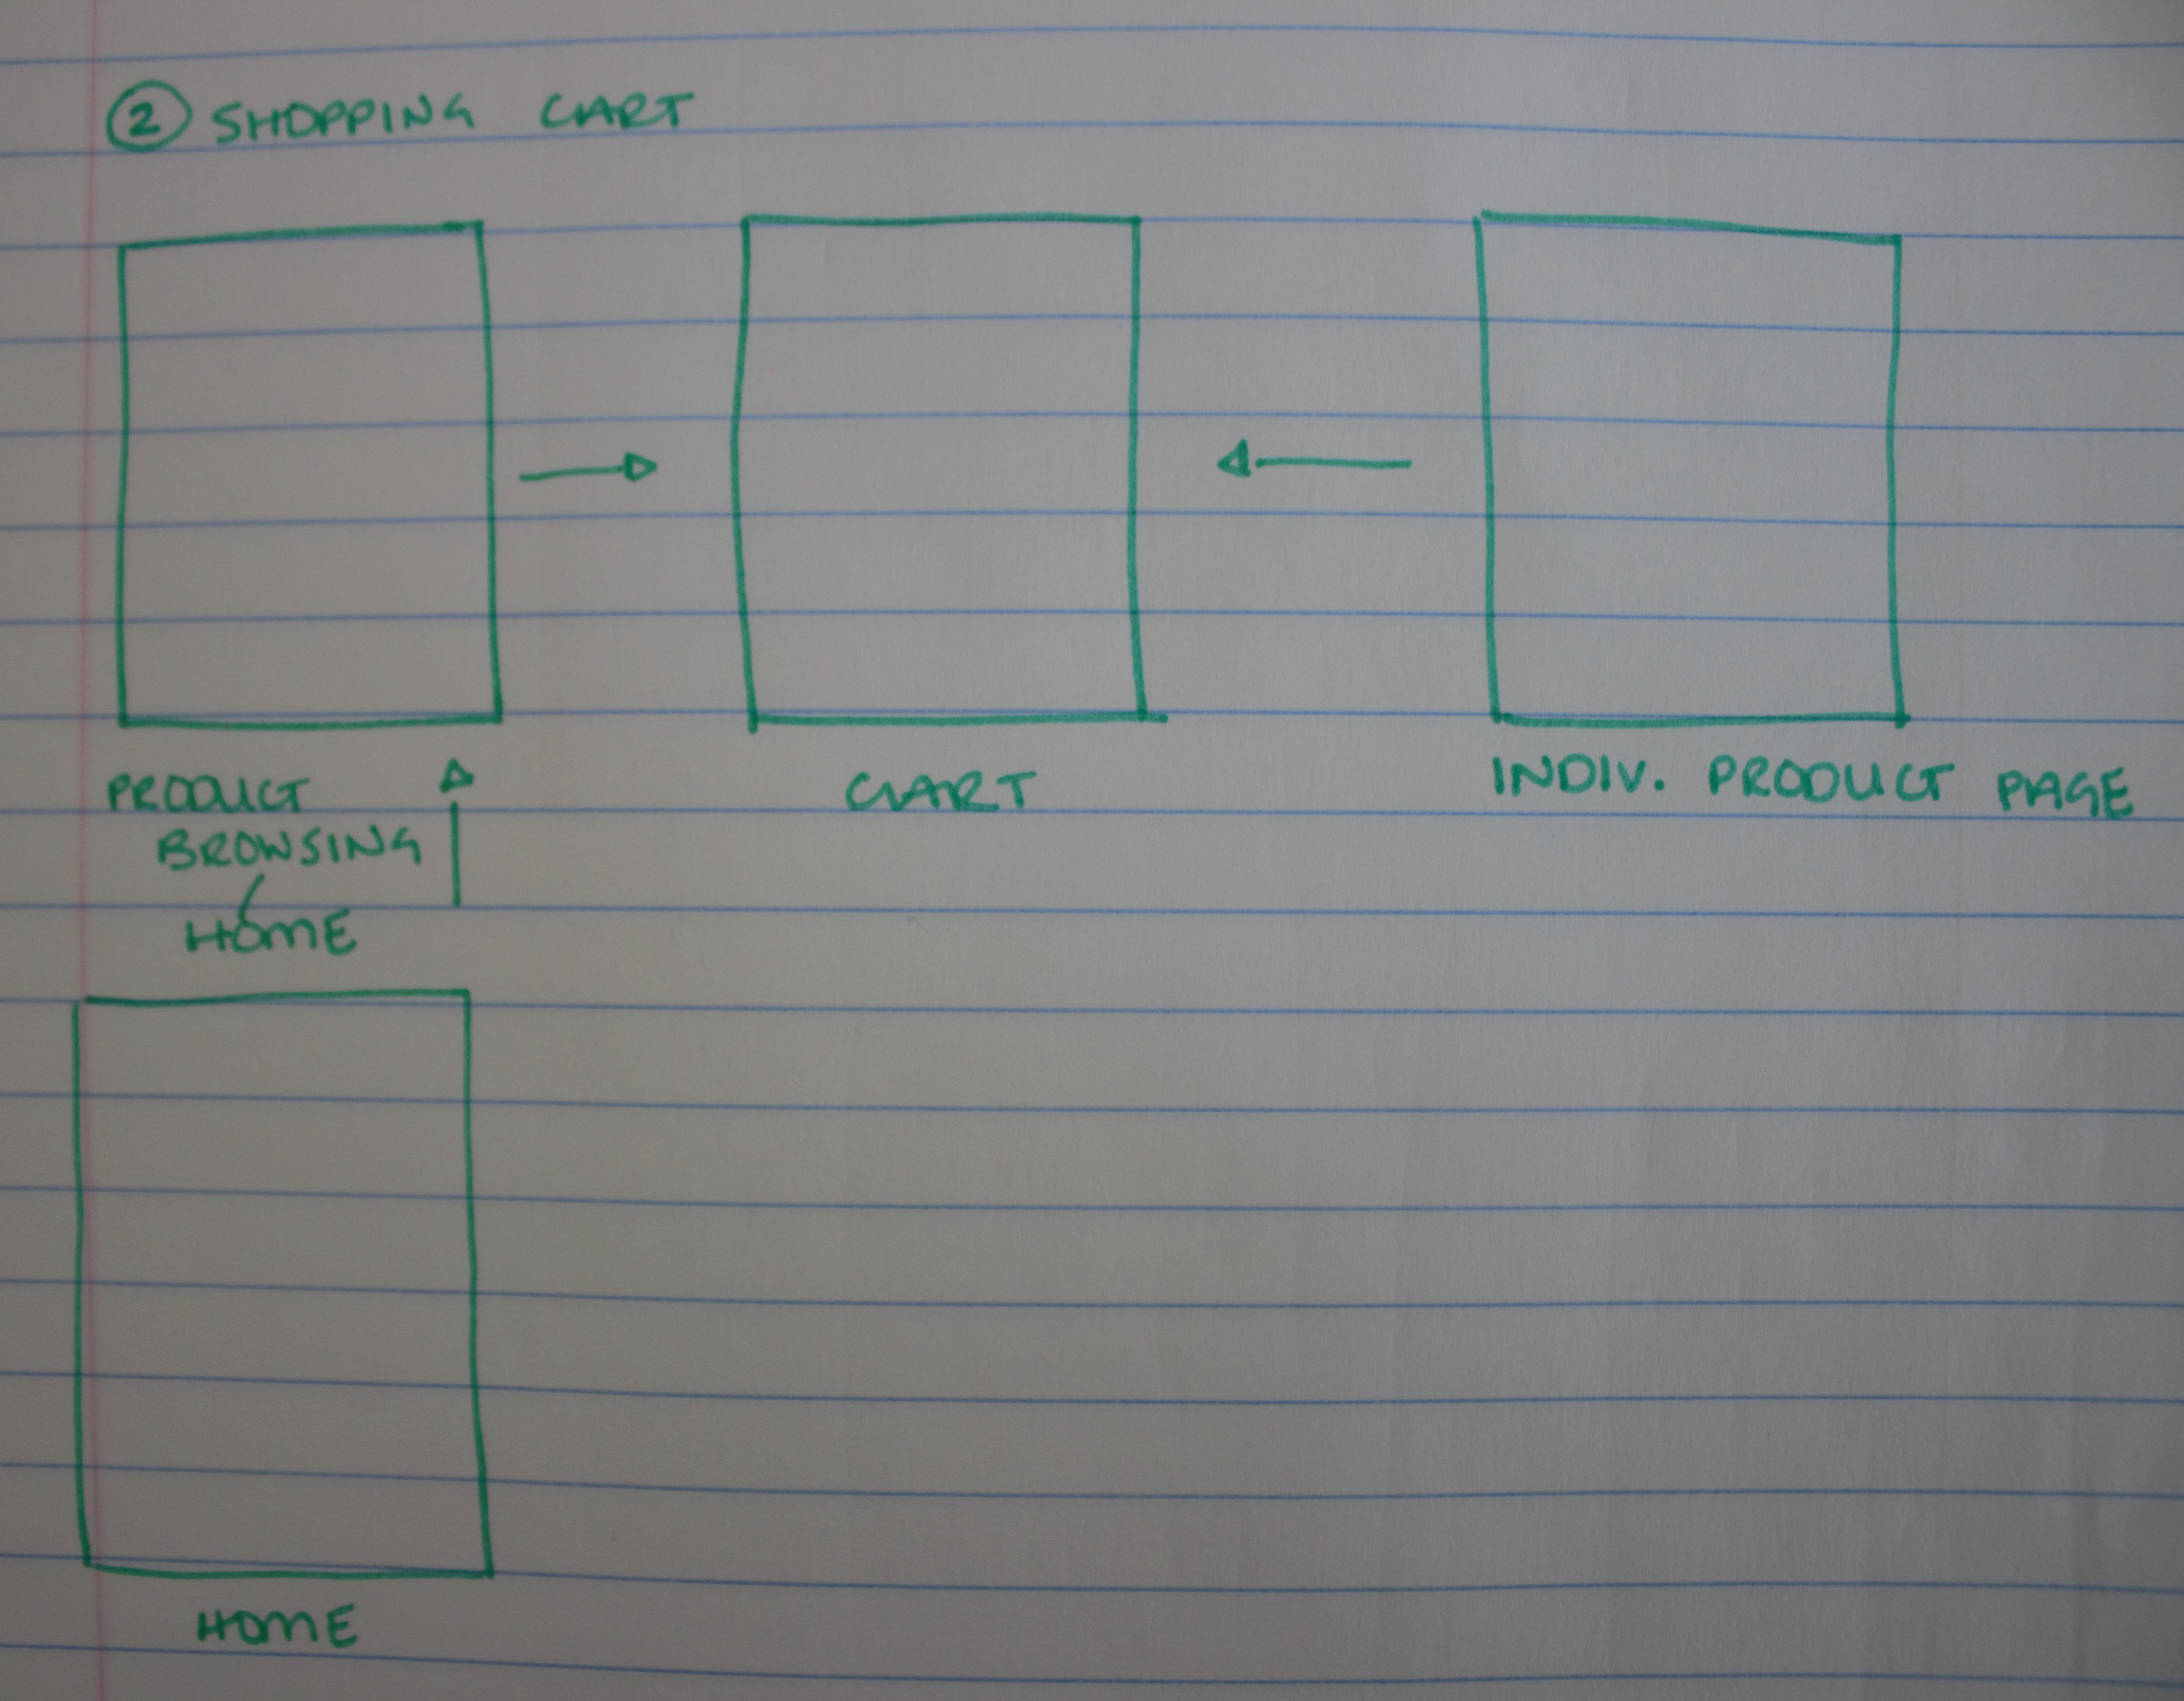 2 SHOPPING CART
PRODUCT
BROWSING
HOME
CART
INDIV. PRODUCT PAGE
HOME